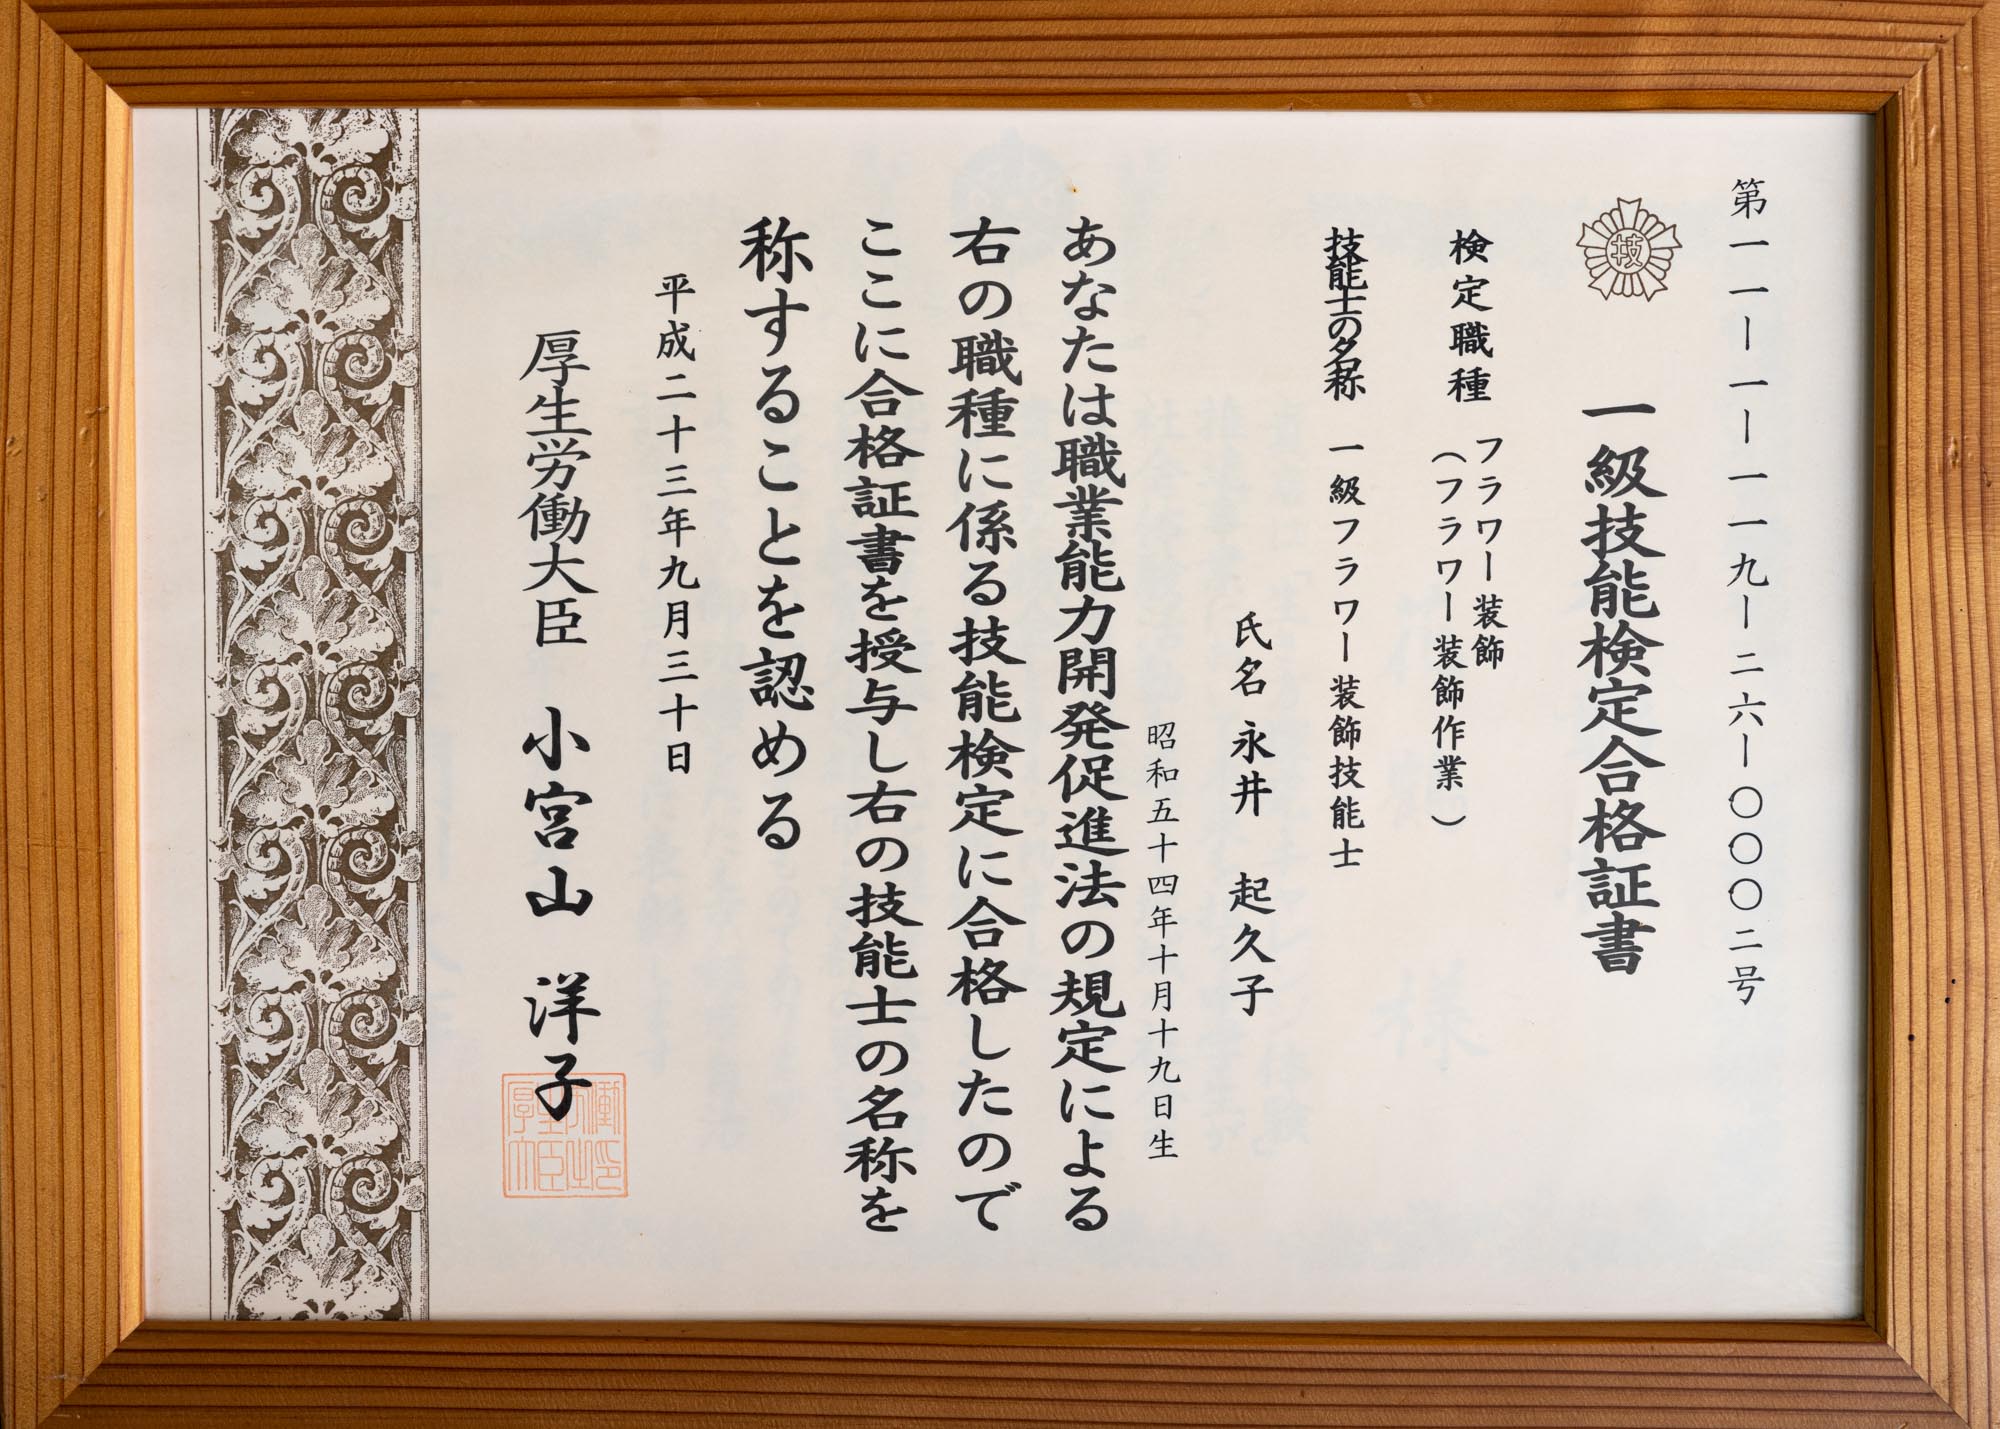 第一一一ー一ー一一九ー二六ー〇〇〇二号
技
一級技能検定合格証書
検定職種 フラワー装飾
（フラワー装飾作業）
技能士の名称 一級フラワー装飾技能士
氏名 永井 起久子
昭和五十四年十月十九日生
あなたは職業能力開発促進法の規定による
右の職種に係る技能検定に合格したので
ここに合格証書を授与し右の技能士の名称を
称することを認める
平成二十三年九月三十日
厚生労働大臣 小宮山 洋子